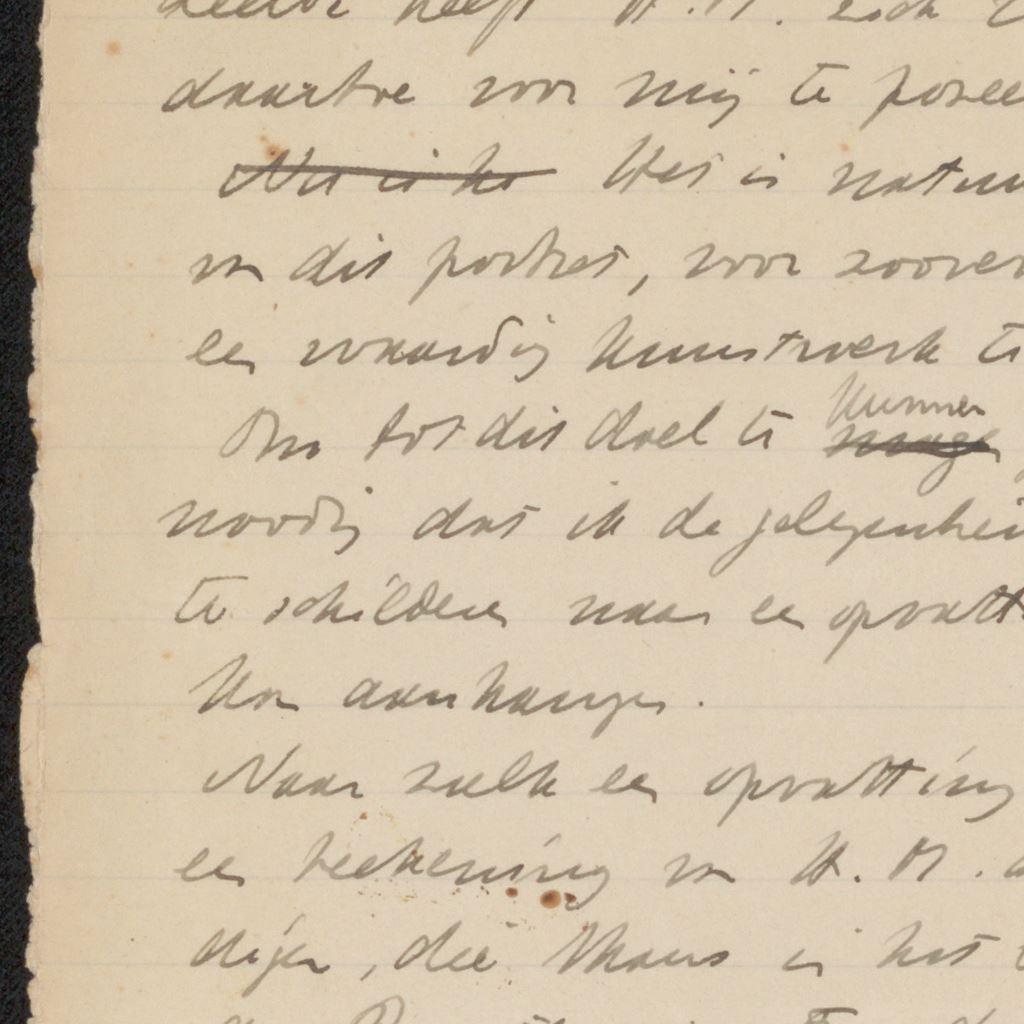 heeft H.M. zich
daartoe voor mij te posee
Nu is he Het is natuu
van dit portret, voor zoover
een waardig kunstwerk te
kunnen
Om tot dit doel te mogen
noodig dat ik de gelegenhei
te schilderen naar een opvatt
kan aanhangen.
Naar zulk een opvatting
een teekening van H.M. a
digen, die thans in het